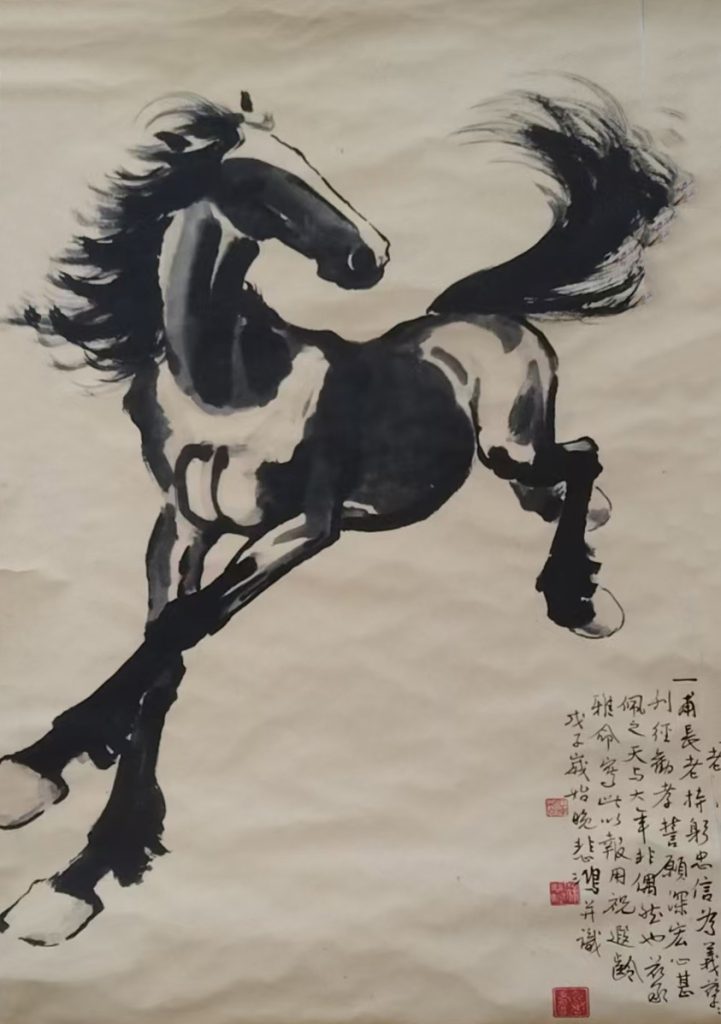 老
一甫長老持躬忠信為義
刊經勸孝誓願深宏心甚
佩之天与大年非偶然也茲承
雅命寫此以報用祝遐齡
戊子歲始晚悲鴻并識